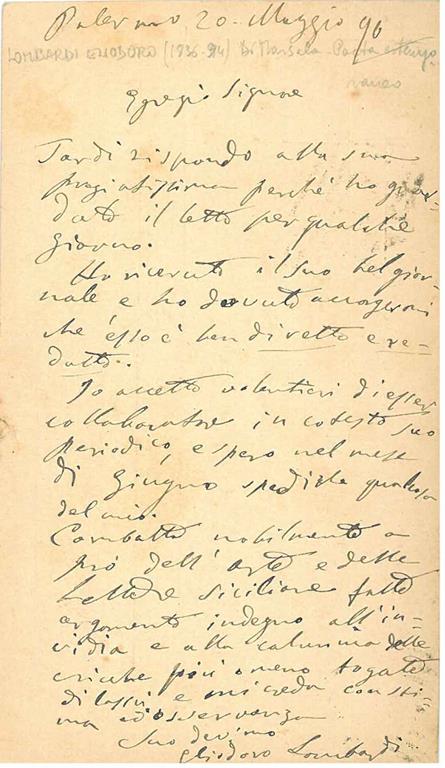 Palermo 20 Maggio 90
LOMBARDI ELIODORO (1836-94) Di Marsala - Poeta
Egregio Signore
Tardi rispondo alla sua
pregiatissima perché ho guar-
dato il letto per qualche
giorno.
Ho ricevuto il suo bel gior-
nale e ho dovuto accorgermi
che esso è ben diretto e re-
datto.
Io accetto volentieri di esser
collaboratore in cotesto suo
Periodico, e spero nel mese
di Giugno spedirle qualcosa
del mio.
Combatto nobilmente a
pro dell'arte e delle
lettere siciliane fatte
argomento indegno all'in-
vidia e alla calunnia delle
cricche più o meno togate
di lassù e mi creda con sti-
ma ed osservanza
Suo dev.mo
Eliodoro Lombardi